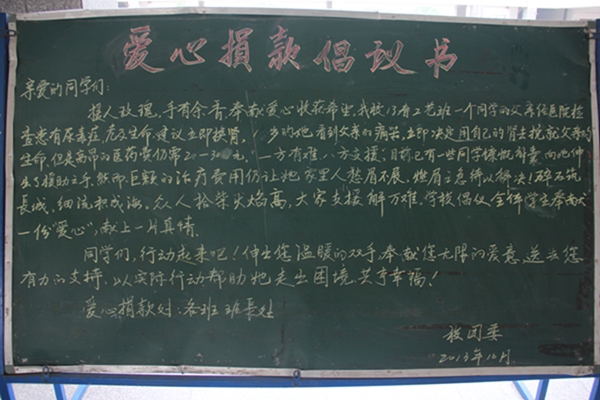 爱心捐款倡议书
亲爱的同学们:
授人玫瑰,手有余香,奉献爱心,收获希望,我校13春工艺班一个同学的父亲经医院检
查患有尿毒症,危及生命,建议立即换肾。岁的她看到父亲的病苦,立即决定用自己的肾去挽救父亲的
生命,但是高昂的医药费仍需20-30万元,一方有难,八方支援;目前已有一些同学慷慨解囊,向她伸
出了援助之手,然而巨额的治疗费用仍让她家里人愁眉不展,燃眉之急待以解决!磚石筑
長城,细流积成海。众人拾柴火焰高,大家支援解万难,学校倡仪全体学生奉献
一份“爱心”,献上一片真情。
同学们,行动起来吧!伸出您温暖的双手,奉献您无限的爱意,送去您
有力的支持,以实际行动帮助她走出困境,共享幸福!
爱心捐款处:各班班長处
校团委
2013年10月